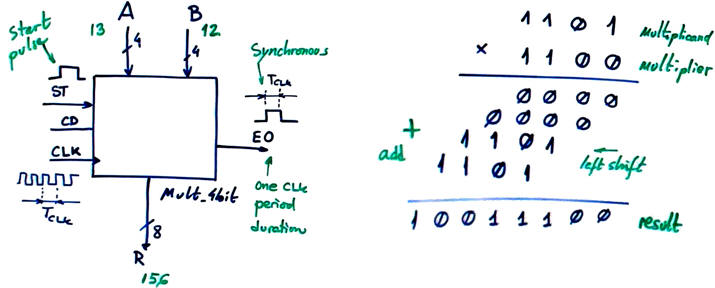 Start
pulse
ST
CD
CLK
TCLK
A
13
4
B
12
4
Mult_4bit
8
R
156
Synchronous
TCLK
EO
one CLK
period
duration
1 1 0 1 Multiplicand
× 1 1 0 0 Multiplier
0 0 0 0
0 0 0 0
1 1 0 1
1 1 0 1
+
add
left shift
1 0 0 1 1 1 0 0 result